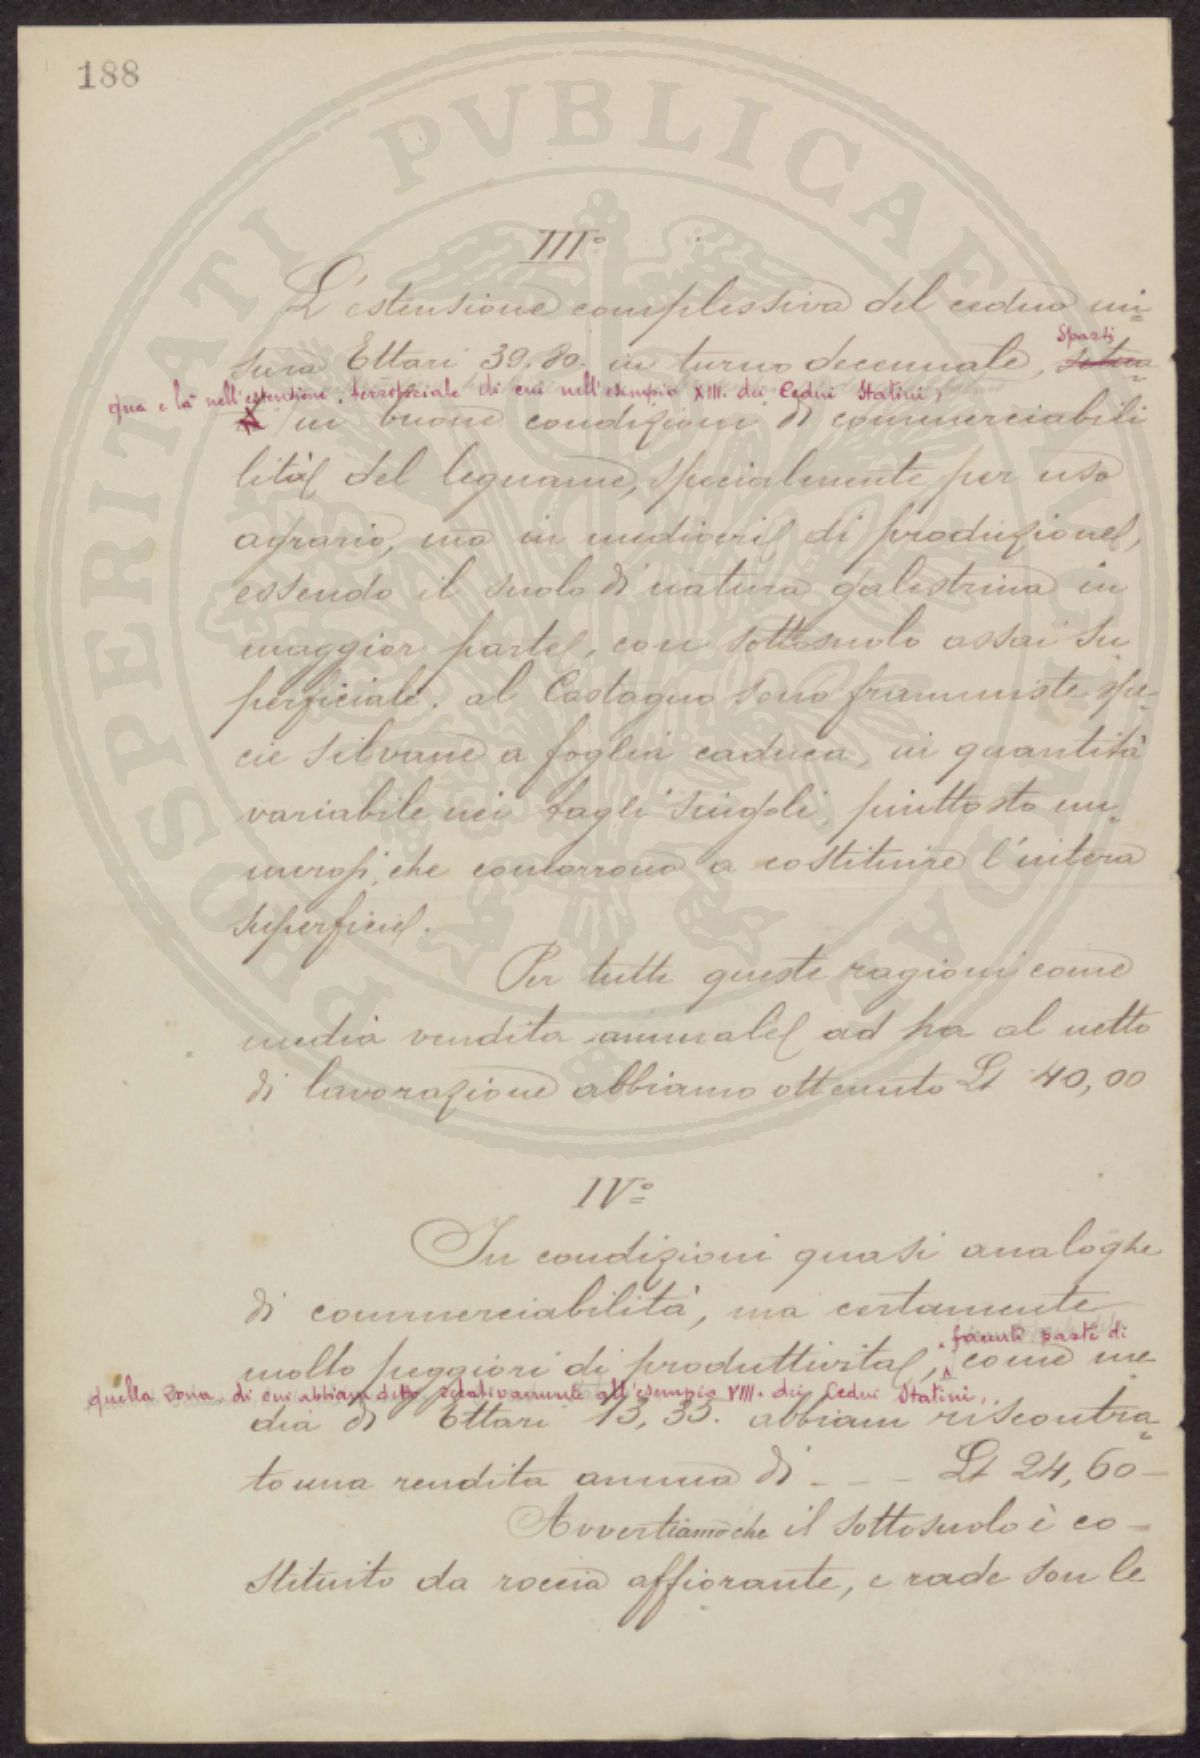 188
PROSPERITATI PVBLICAE AVGENDAE
III°
L'estensione complessiva del ceduo mi=
sura Ettari 39.80. in turno decennale, Sparsi
qua e là nell'estensione terroriale di cui nell'esempio XIII. dei Cedui Statini,
in buone condizioni di commerciabili
lità del legname, specialmente per uso
agrario, ma in mediocri di produzione,
essendo il suolo di natura galestrina in
maggior parte, con sottosuolo assai su
perficiale. al Castagno sono frammiste spe-
cie silvane a foglia caduca, in quantità
variabile nei tagli singoli, piuttosto nu
merosi, che concorrono a costituire l'intera
superficie.
Per tutte queste ragioni come
media vendita annuale ad ha al netto
di lavorazione abbiamo ottenuto Lt 40,00
IV°
In condizioni quasi analoghe
di commerciabilità, ma certamente
facenti parte di
molto peggiori di produttività, come me
quella zona, di cui abbiam detto relativamente all'esempio VIII. dei Cedui Statini,
dia di Ettari 13,35. abbiam riscontra=
to una rendita annua di - - - Lt 24,60-
Avvertiamo che il sottosuolo è co-
stituito da roccia affiorante, e rade son le